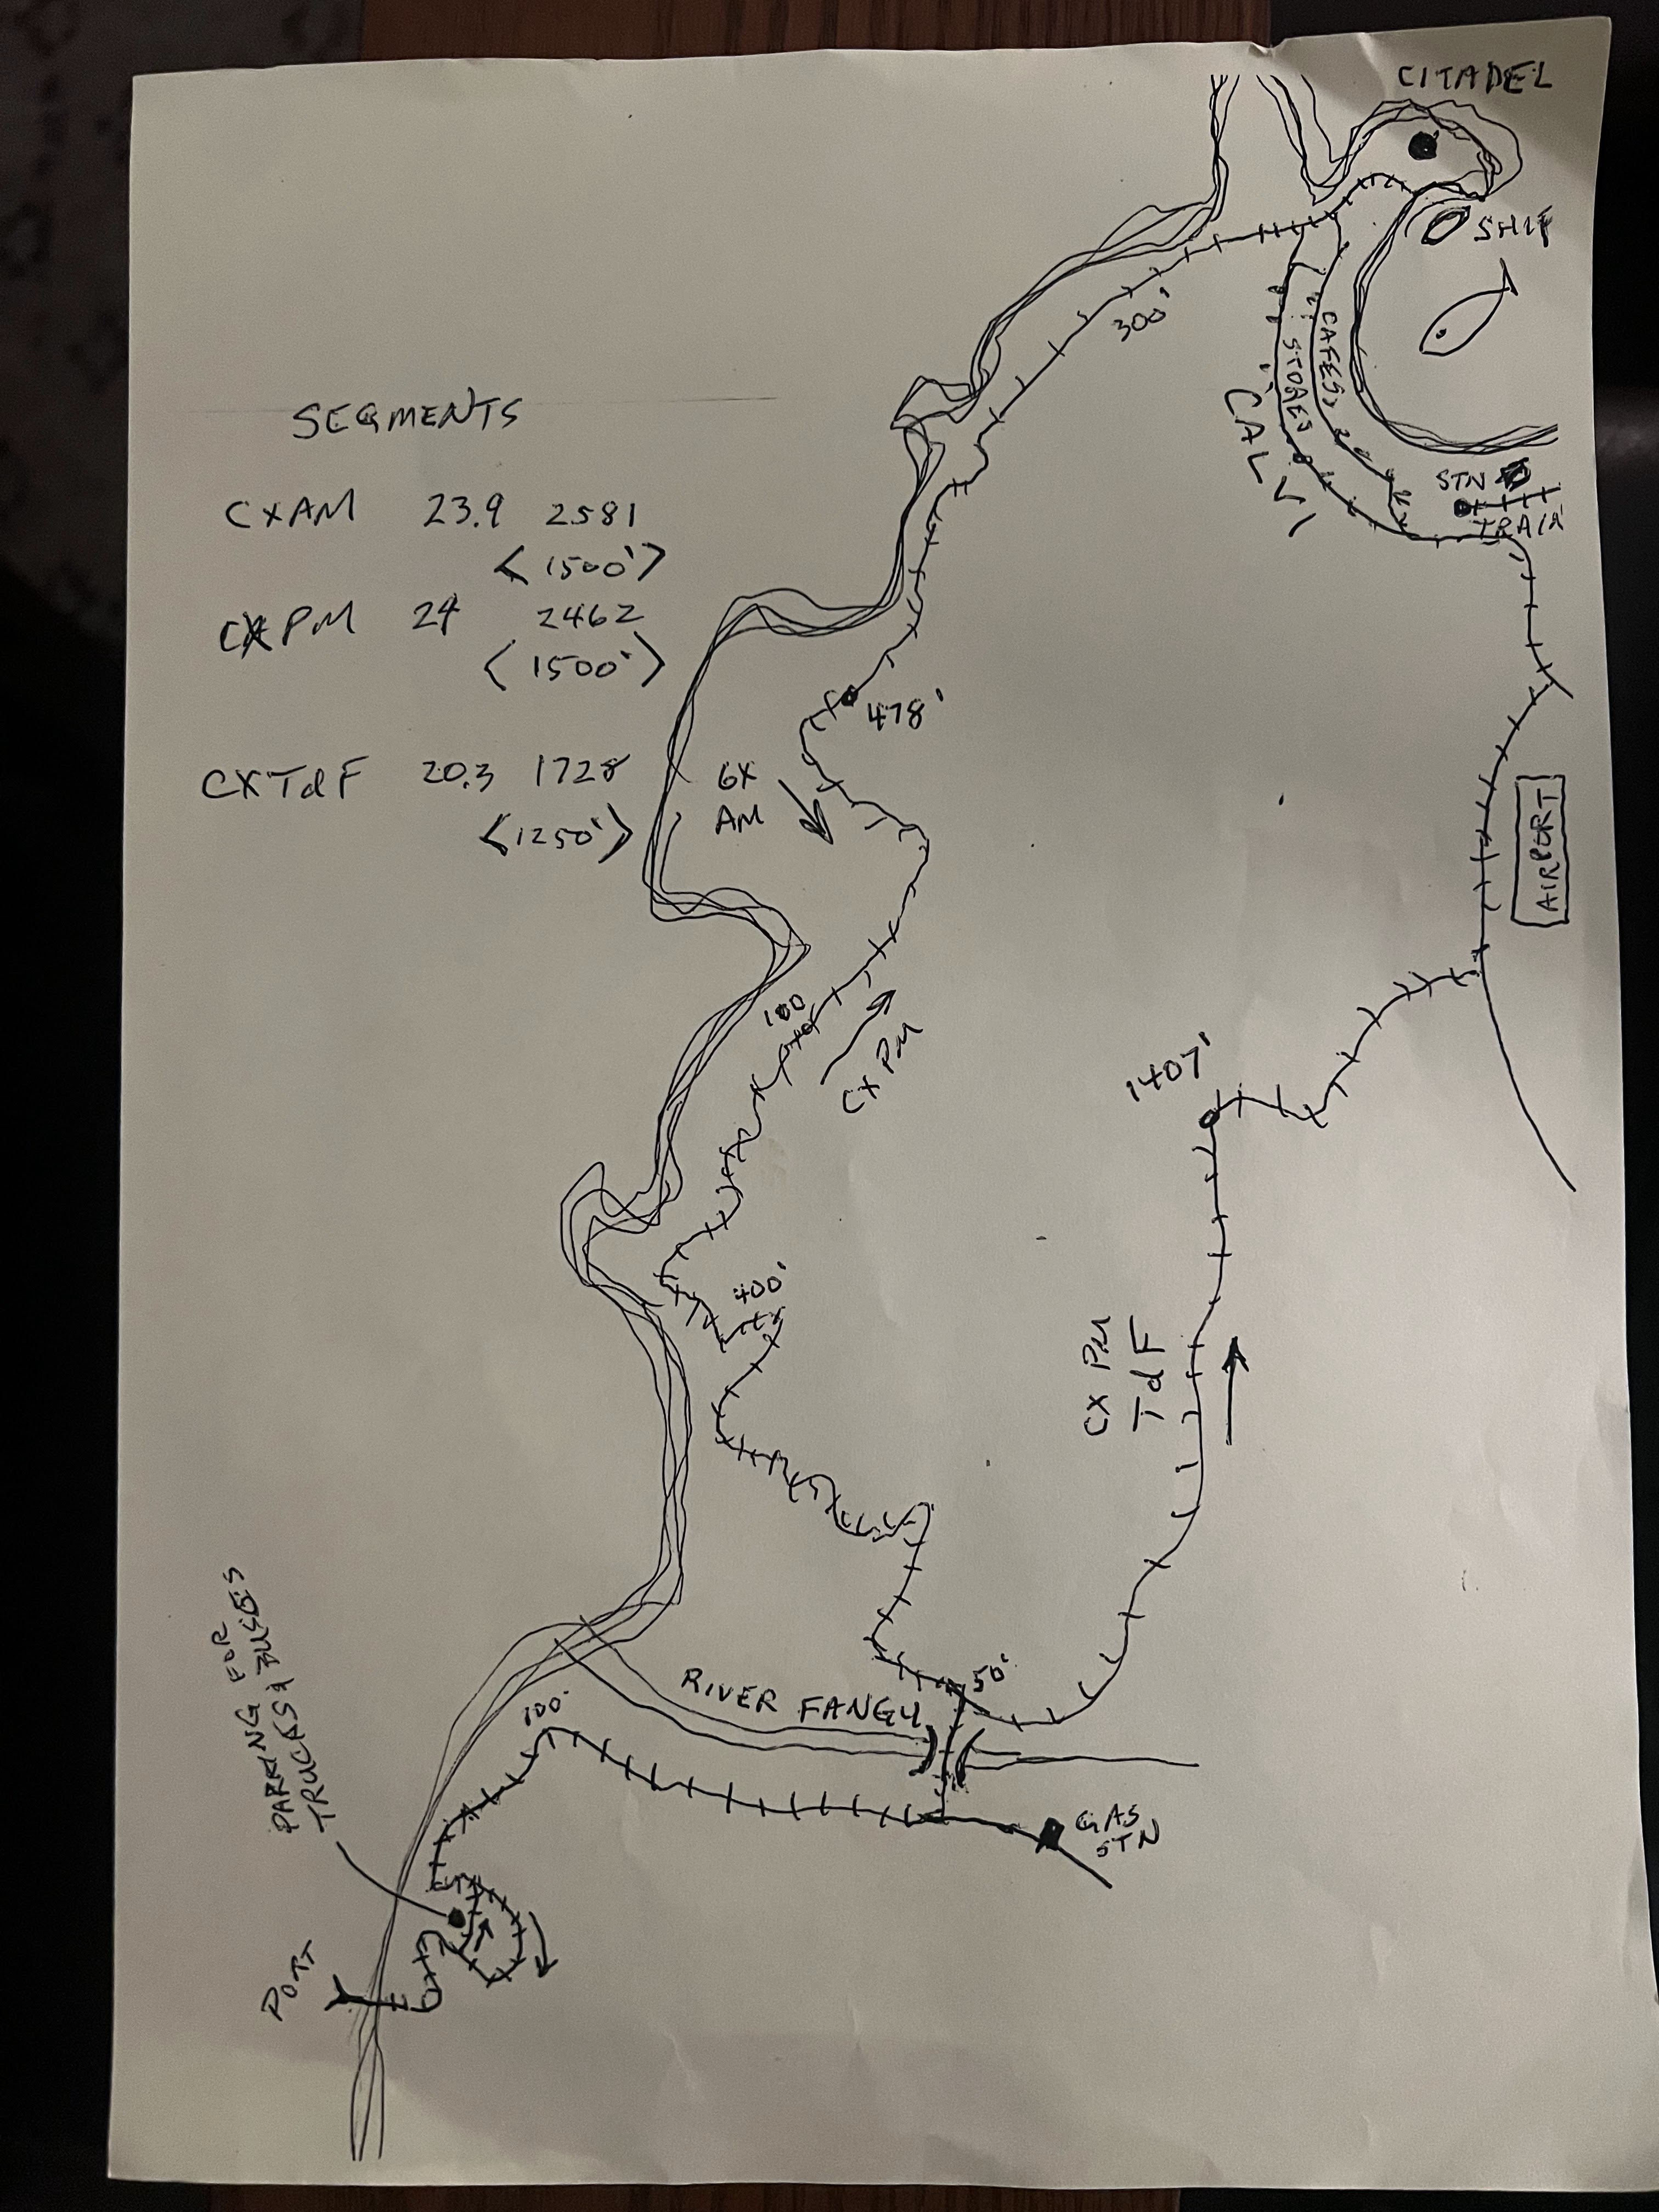 CITADEL
SHIP
300'
CAFES
STORES
CALVI
SEGMENTS
STN
TRAIN
CXAM 23.9 2581
<1500'>
CXPM 24 2462
<1500'>
478'
CXTdF 20.3 1728
<1250'>
CX
AM
AIRPORT
100
CX PM
1407'
400'
CX PM
TdF
PARKING FOR
TRUCKS & BUSES
50'
RIVER FANGU
100'
GAS
STN
PORT